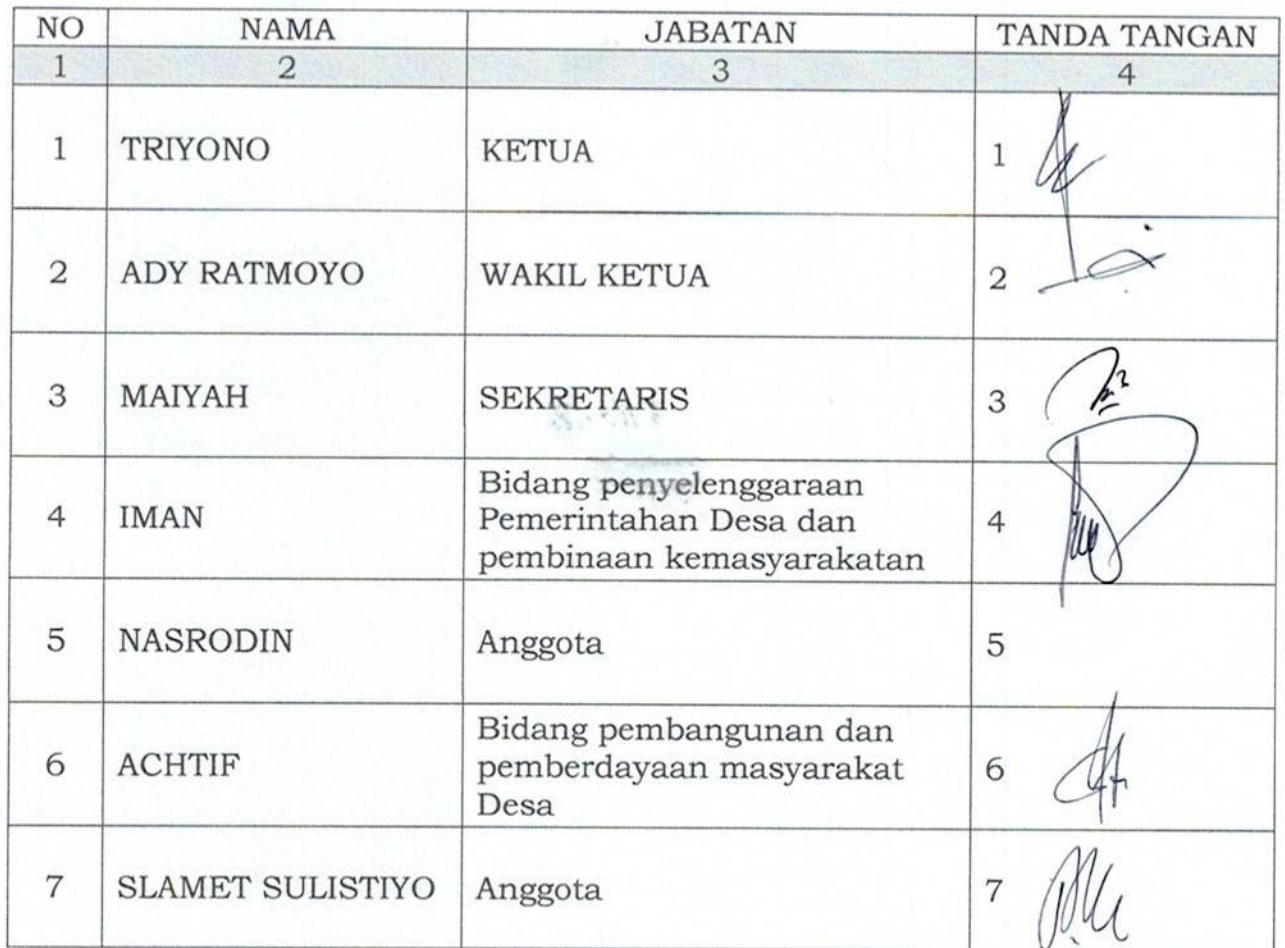 NO NAMA JABATAN TANDA TANGAN
1 2 3 4
1 TRIYONO KETUA 1
2 ADY RATMOYO WAKIL KETUA 2
3 MAIYAH SEKRETARIS 3
4 IMAN Bidang penyelenggaraan
Pemerintahan Desa dan
pembinaan kemasyarakatan 4
5 NASRODIN Anggota 5
6 ACHTIF Bidang pembangunan dan
pemberdayaan masyarakat
Desa 6
7 SLAMET SULISTIYO Anggota 7